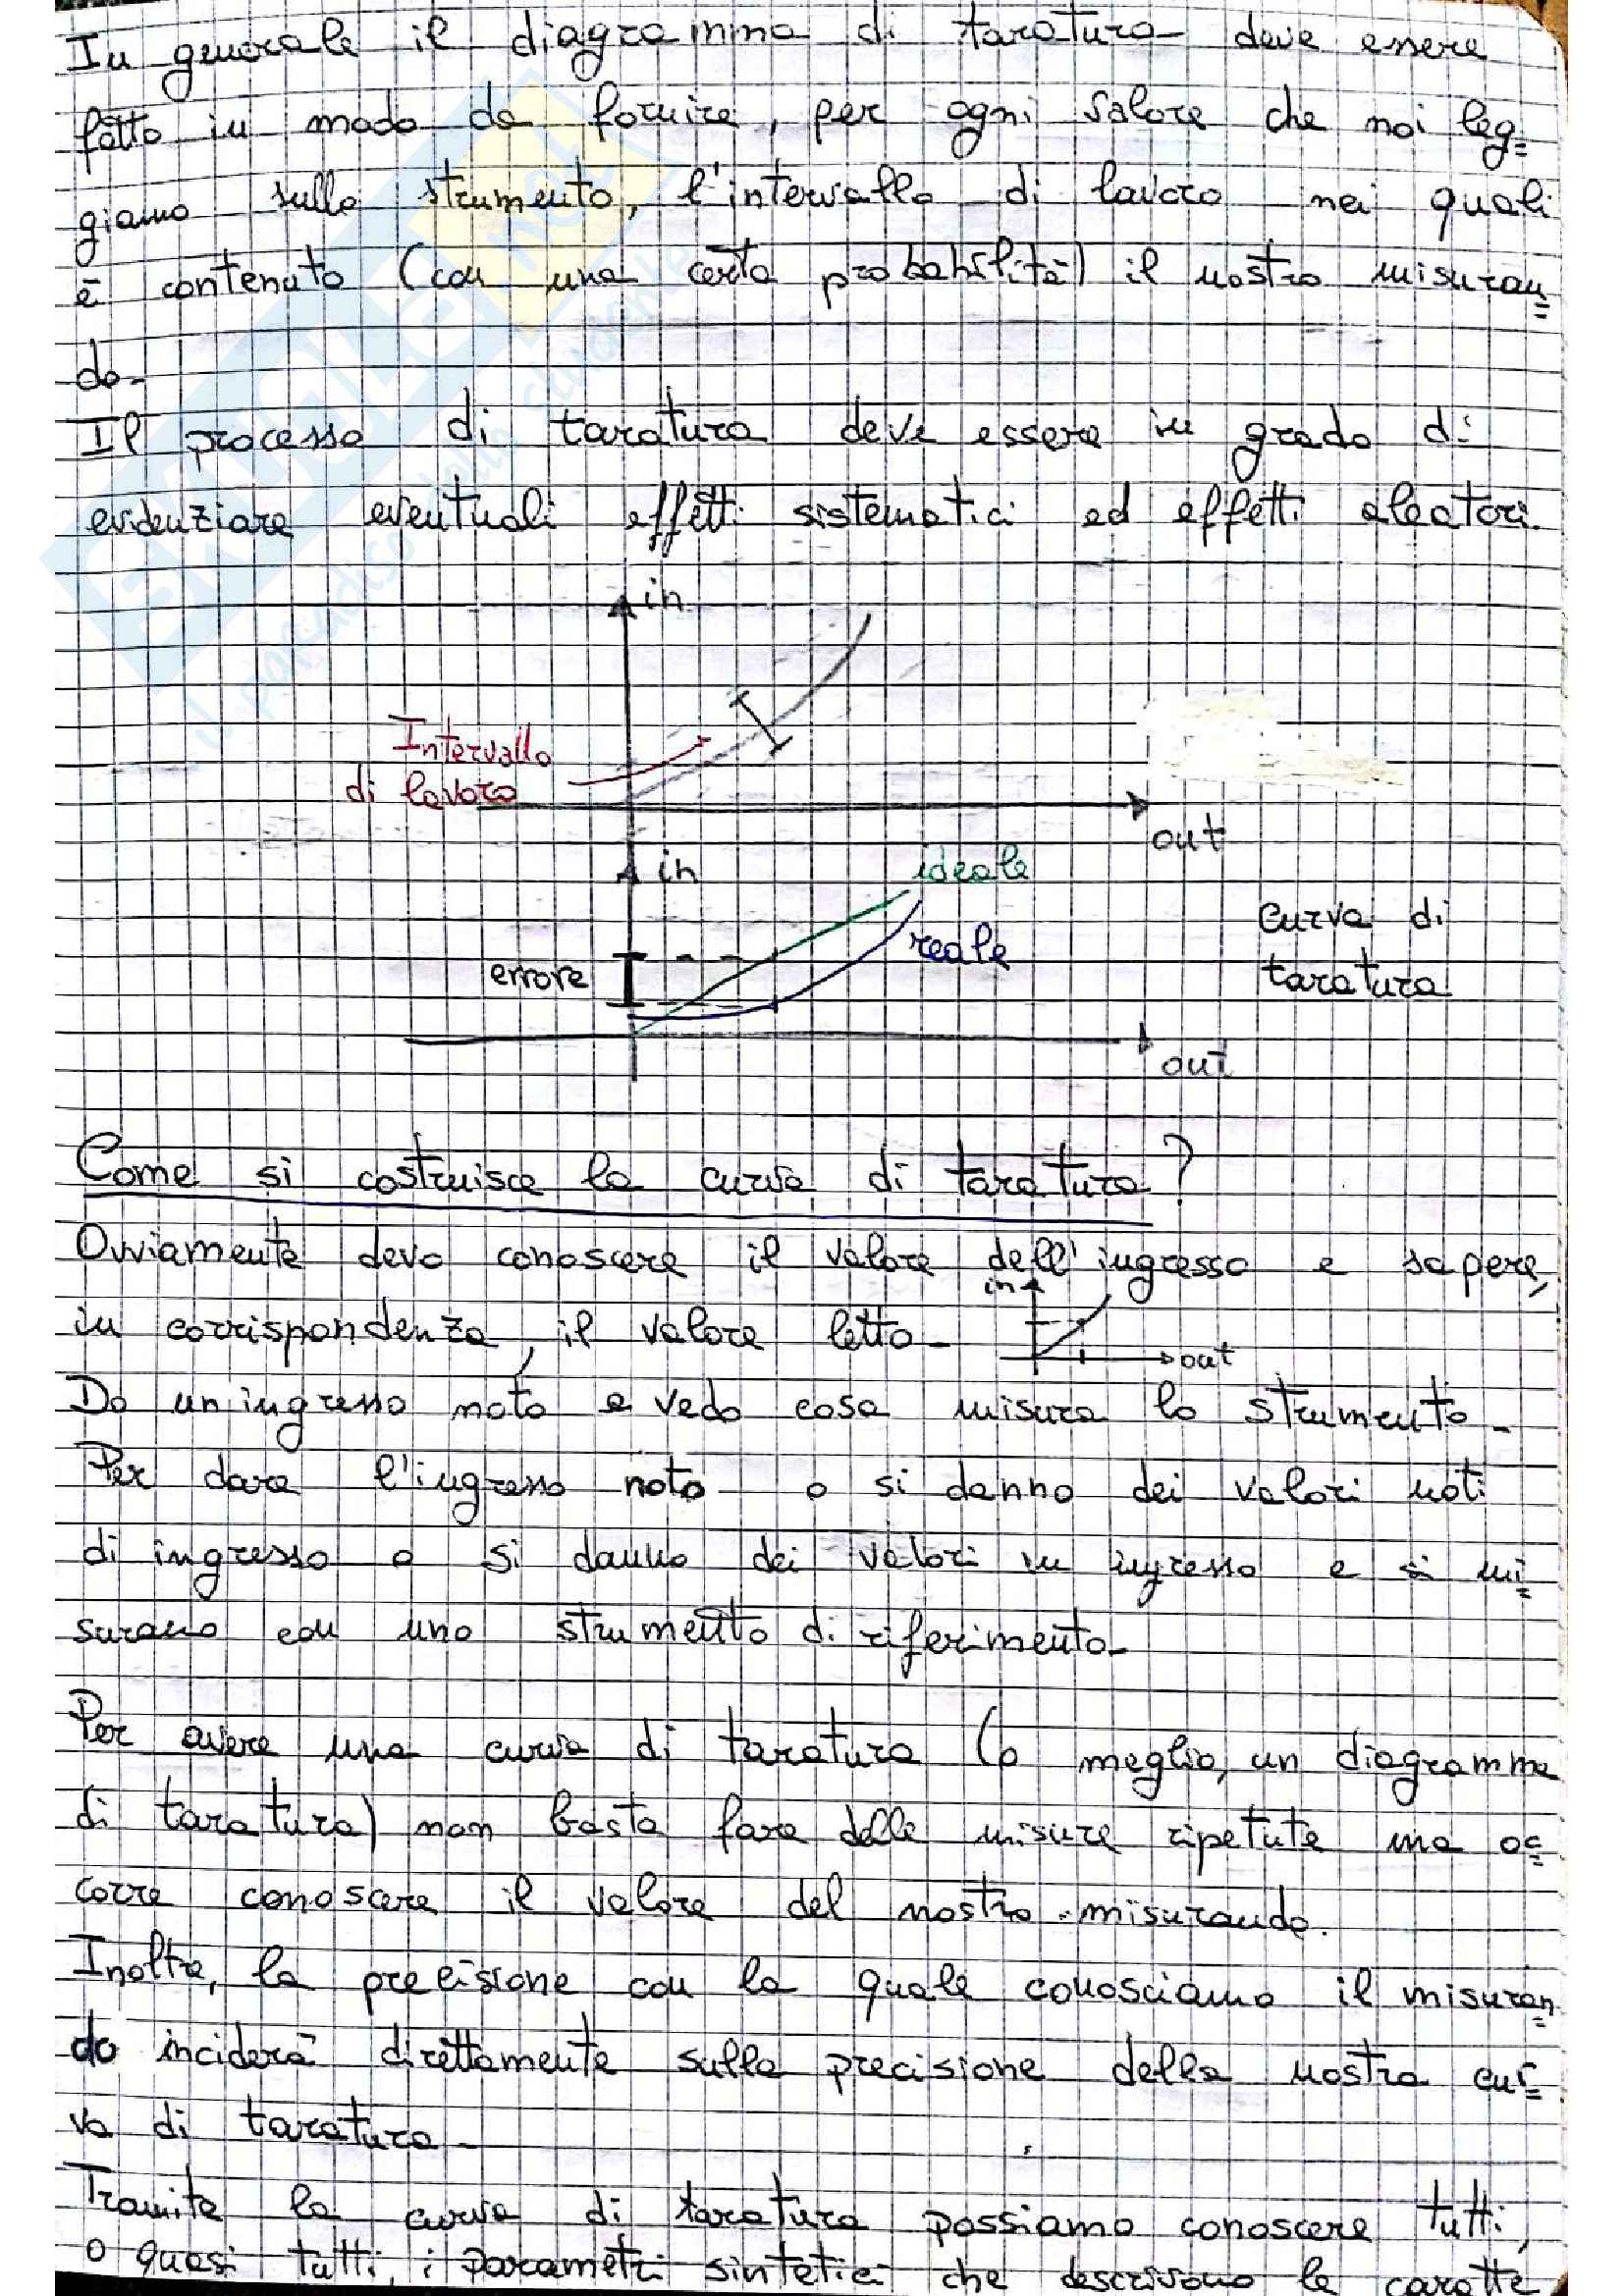 In generale il diagramma di taratura deve essere
fatto in modo da fornire, per ogni valore che noi leg=
giamo sullo strumento, l'intervallo di lavoro nei quali
è contenuto (con una certa probabilità) il nostro misuran=
do-
Il processo di taratura deve essere in grado di
evidenziare eventuali effetti sistematici ed effetti aleatori.
in
Intervallo
di lavoro
out
in
ideale
reale
errore
curva di
taratura
out
Come si costruisce la curva di taratura?
Ovviamente devo conoscere il valore dell'ingresso e sapere,
in corrispondenza, il valore letto-
in
out
Do un ingresso noto e vedo cosa misura lo strumento-
Per dare l'ingresso noto o si danno dei valori noti
di ingresso o si danno dei valori in ingresso e si mi=
surano con uno strumento di riferimento-
Per avere una curva di taratura (o meglio, un diagramma
di taratura) non basta fare delle misure ripetute ma oc=
corre conoscere il valore del nostro misurando.
Inoltre, la precisione con la quale conosciamo il misuran=
do inciderà direttamente sulla precisione della nostra cur=
va di taratura-
Tramite la curva di taratura possiamo conoscere tutti,
o quasi tutti, i parametri sintetici che descrivono le caratte
SKUOLA.net
il paradiso dello studente